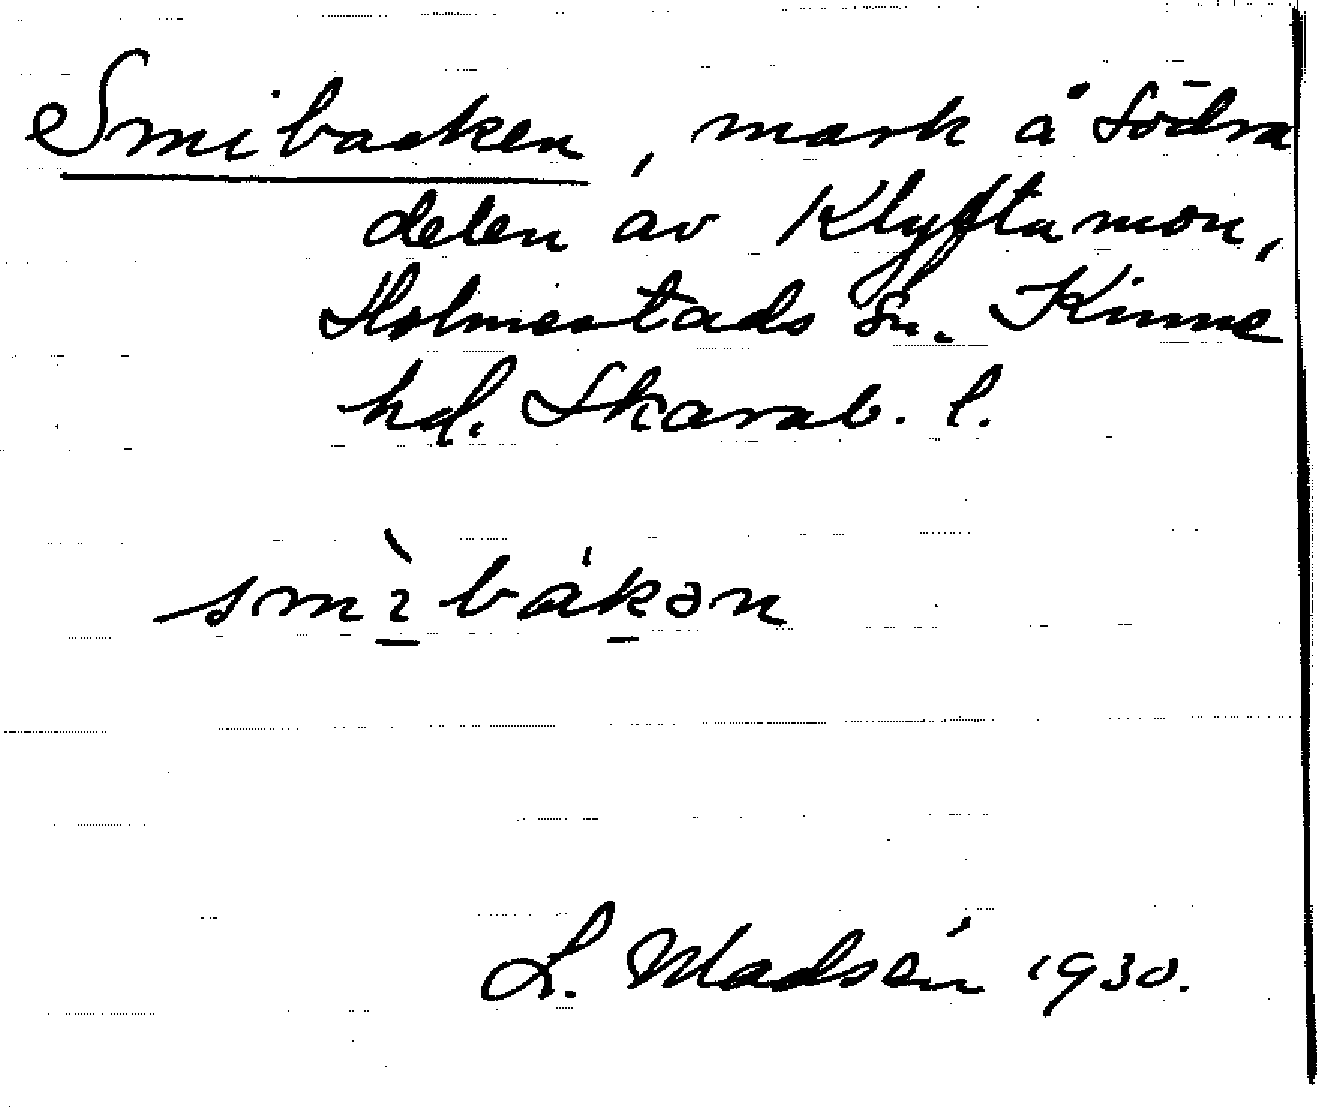 Smibacken, mark å södra
delen av Klyftamon,
Holmestads sn. Kinne
hd. Skarab. l.
smı̀bákən
L. Madsén 1930.